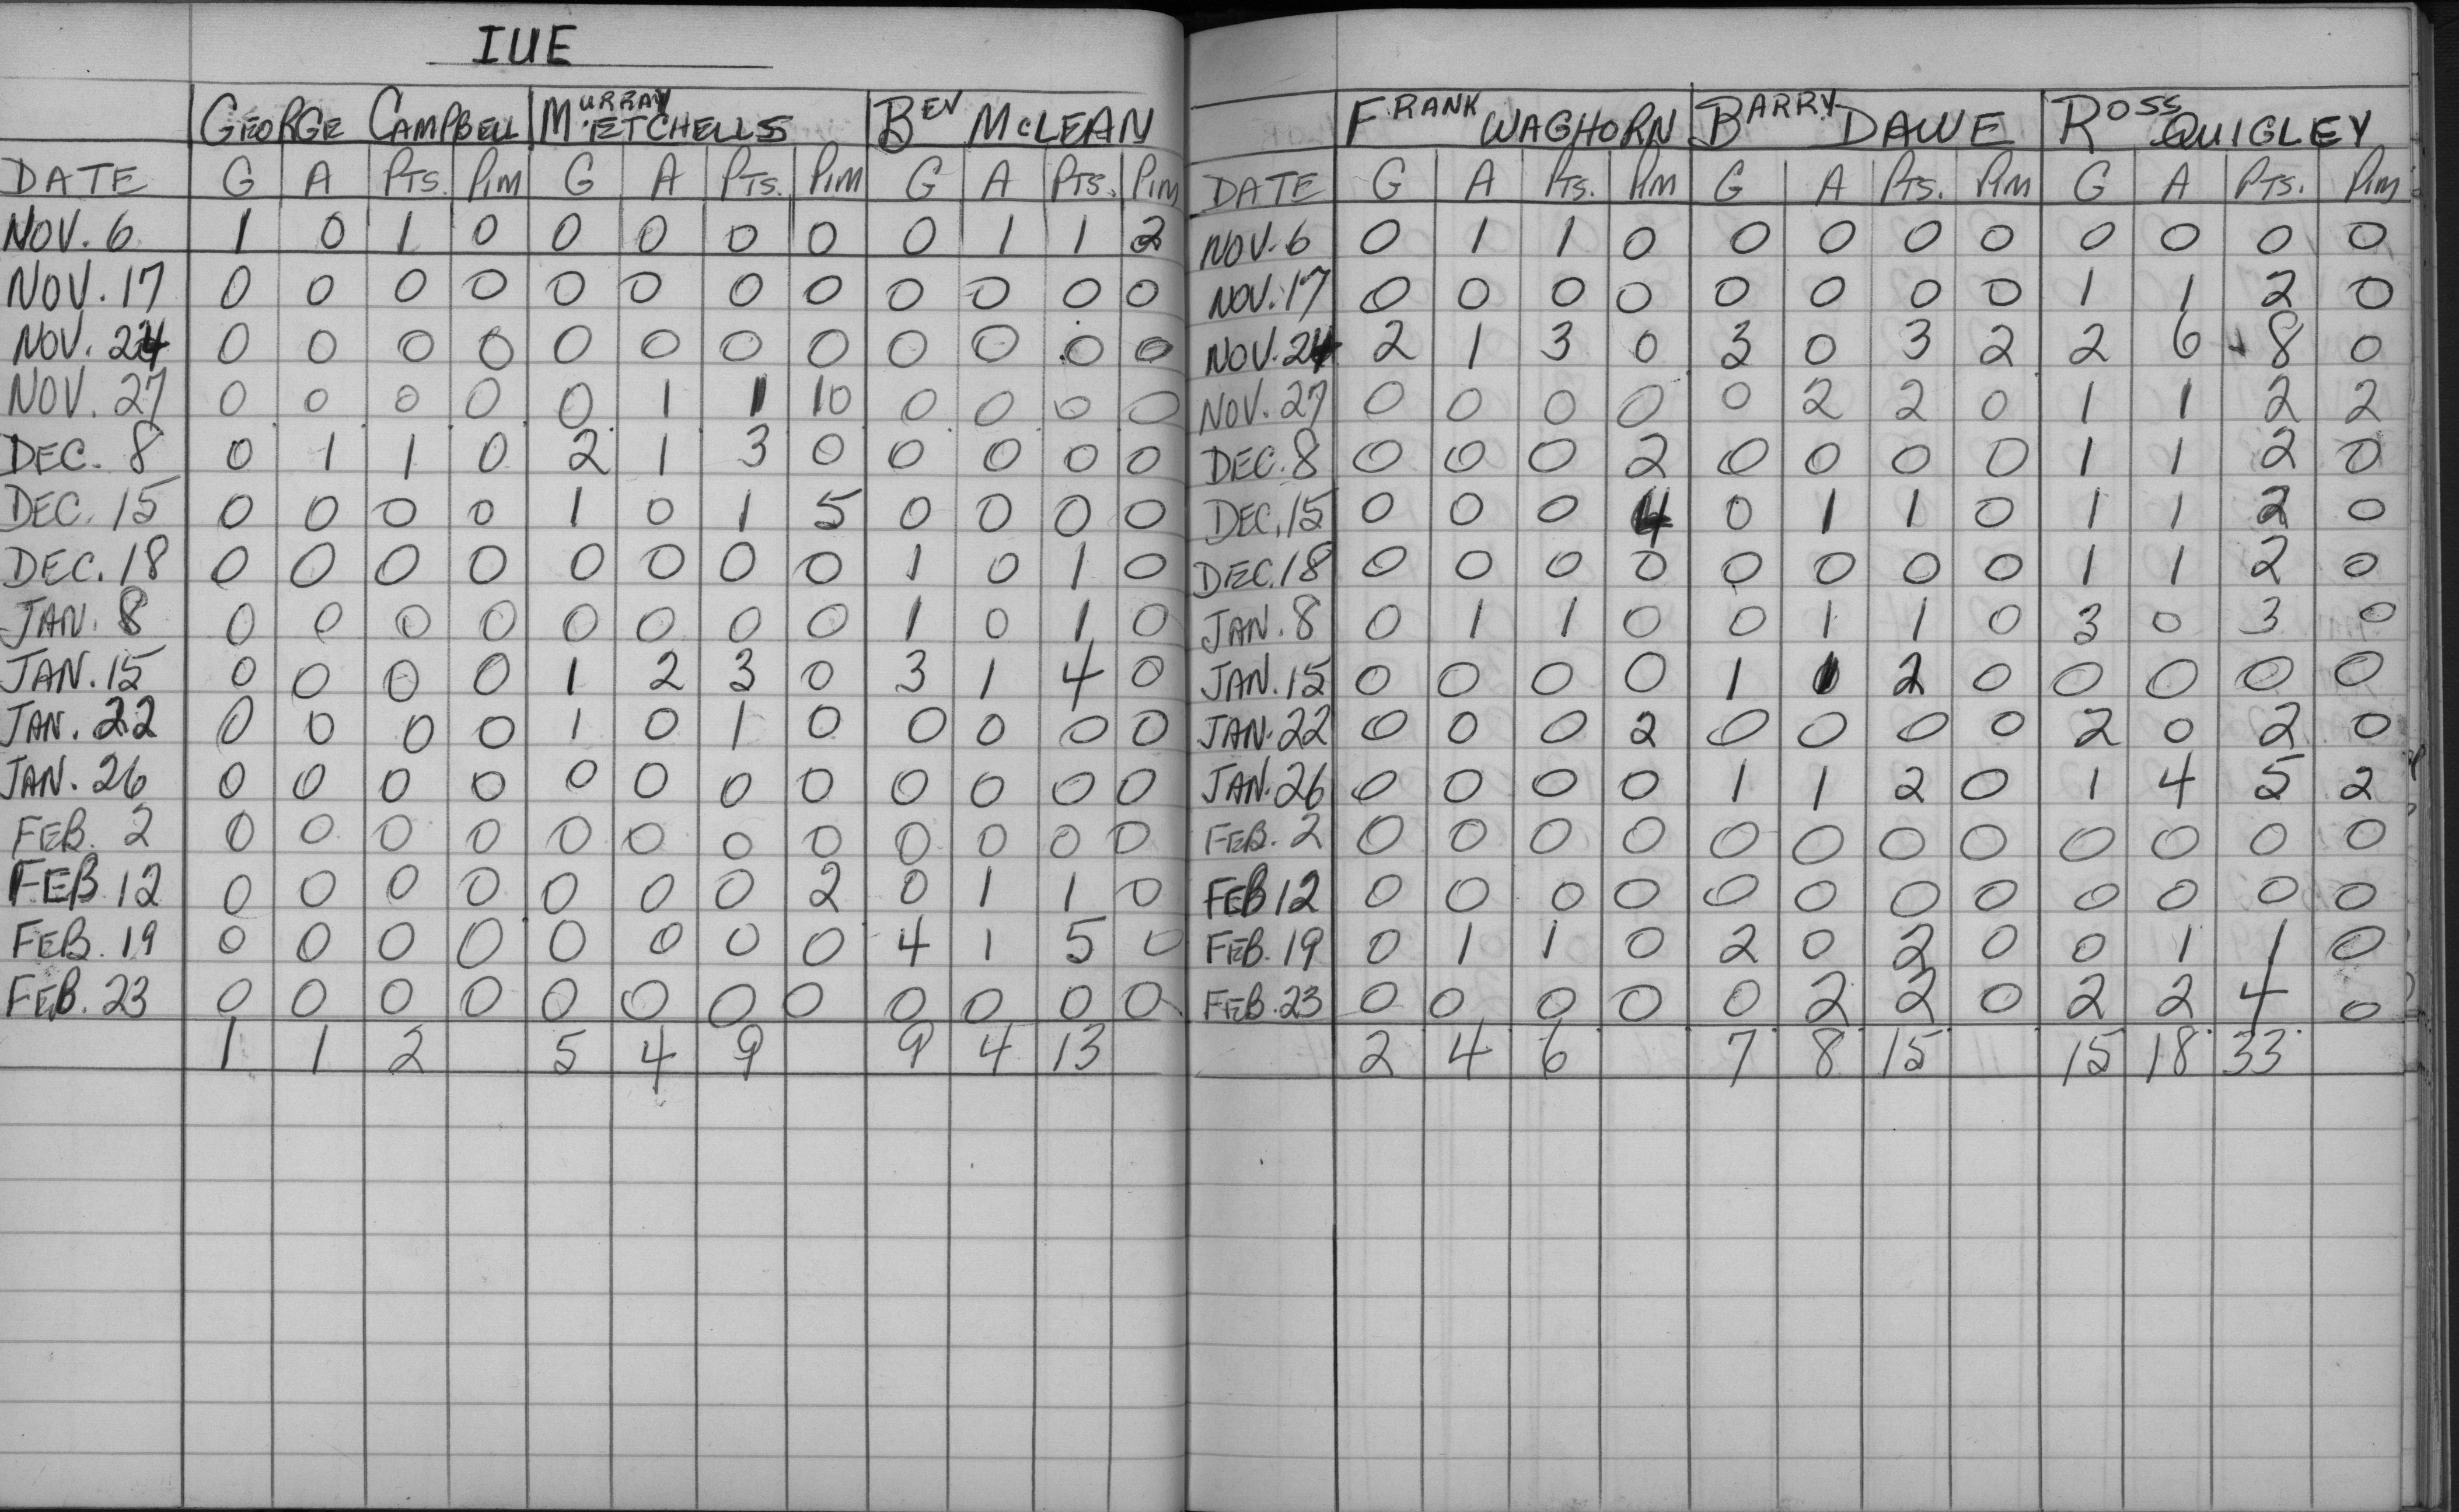 IUE
GEORGE CAMPBELL MURRAY ETCHELLS BEV McLEAN
DATE G A PTS. PIM G A PTS. PIM G A PTS. PIM
NOV. 6 1 0 1 0 0 0 0 0 0 1 1 2
NOV. 17 0 0 0 0 0 0 0 0 0 0 0 0
NOV. 24 0 0 0 0 0 0 0 0 0 0 0 0
NOV. 27 0 0 0 0 0 1 1 10 0 0 0 0
DEC. 8 0 1 1 0 2 1 3 0 0 0 0 0
DEC. 15 0 0 0 0 1 0 1 5 0 0 0 0
DEC. 18 0 0 0 0 0 0 0 0 1 0 1 0
JAN. 8 0 0 0 0 0 0 0 0 1 0 1 0
JAN. 15 0 0 0 0 1 2 3 0 3 1 4 0
JAN. 22 0 0 0 0 1 0 1 0 0 0 0 0
JAN. 26 0 0 0 0 0 0 0 0 0 0 0 0
FEB. 2 0 0 0 0 0 0 0 0 0 0 0 0
FEB 12 0 0 0 0 0 0 0 2 0 1 1 0
FEB. 19 0 0 0 0 0 0 0 0 4 1 5 0
FEB. 23 0 0 0 0 0 0 0 0 0 0 0 0
1 1 2 5 4 9 9 4 13
FRANK WAGHORN BARRY DAWE ROSS QUIGLEY
DATE G A PTS. PIM G A PTS. PIM G A PTS. PIM
NOV. 6 0 1 1 0 0 0 0 0 0 0 0 0
NOV. 17 0 0 0 0 0 0 0 0 1 1 2 0
NOV. 24 2 1 3 0 3 0 3 2 2 6 8 0
NOV. 27 0 0 0 0 0 2 2 0 1 1 2 2
DEC. 8 0 0 0 2 0 0 0 0 1 1 2 0
DEC. 15 0 0 0 4 0 1 1 0 1 1 2 0
DEC. 18 0 0 0 0 0 0 0 0 1 1 2 0
JAN. 8 0 1 1 0 0 1 1 0 3 0 3 0
JAN. 15 0 0 0 0 1 1 2 0 0 0 0 0
JAN. 22 0 0 0 2 0 0 0 0 2 0 2 0
JAN. 26 0 0 0 0 1 1 2 0 1 4 5 2
FEB. 2 0 0 0 0 0 0 0 0 0 0 0 0
FEB 12 0 0 0 0 0 0 0 0 0 0 0 0
FEB. 19 0 1 1 0 2 0 2 0 0 1 1 0
FEB. 23 0 0 0 0 0 2 2 0 2 2 4 0
2 4 6 7 8 15 15 18 33